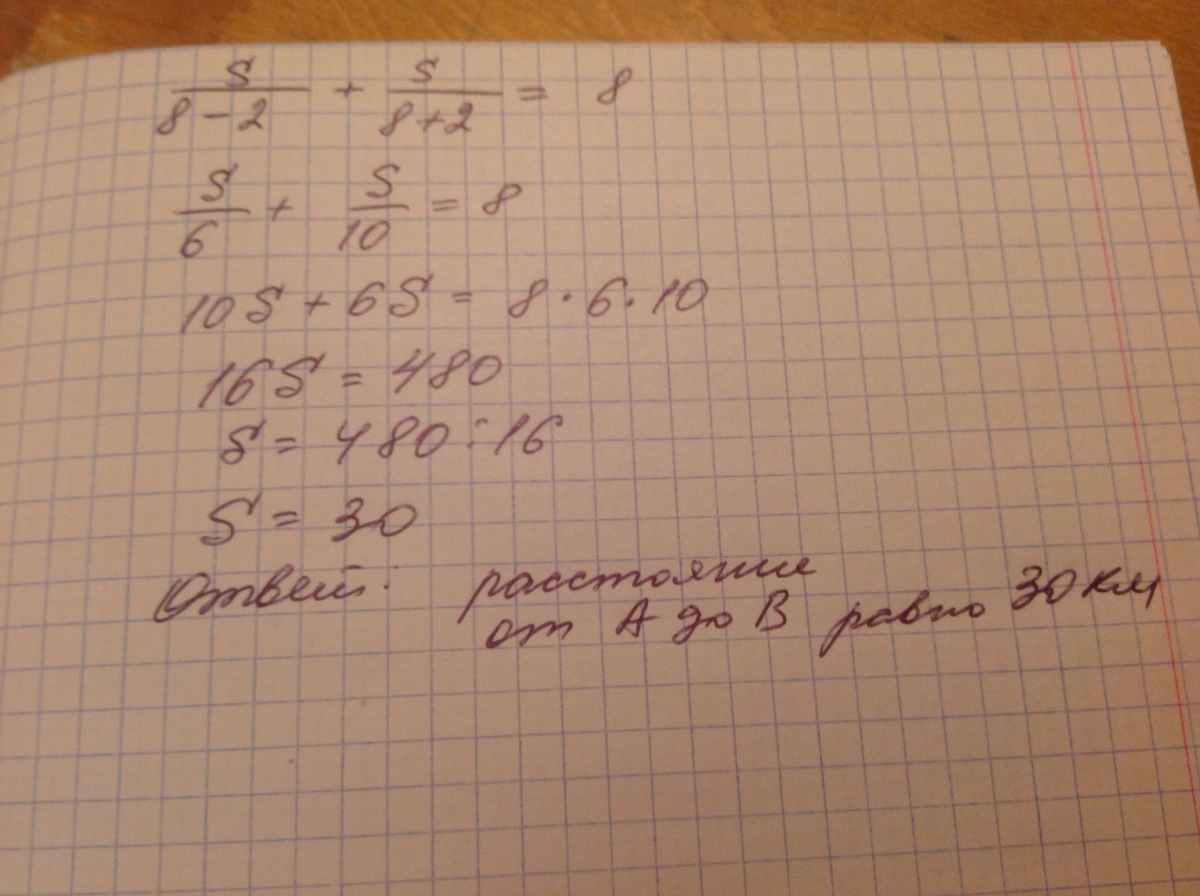 S/(8-2) + S/(8+2) = 8
S/6 + S/10 = 8
10S + 6S = 8 · 6 · 10
16S = 480
S = 480 : 16
S = 30
Ответ: расстояние
от А до В равно 30 км